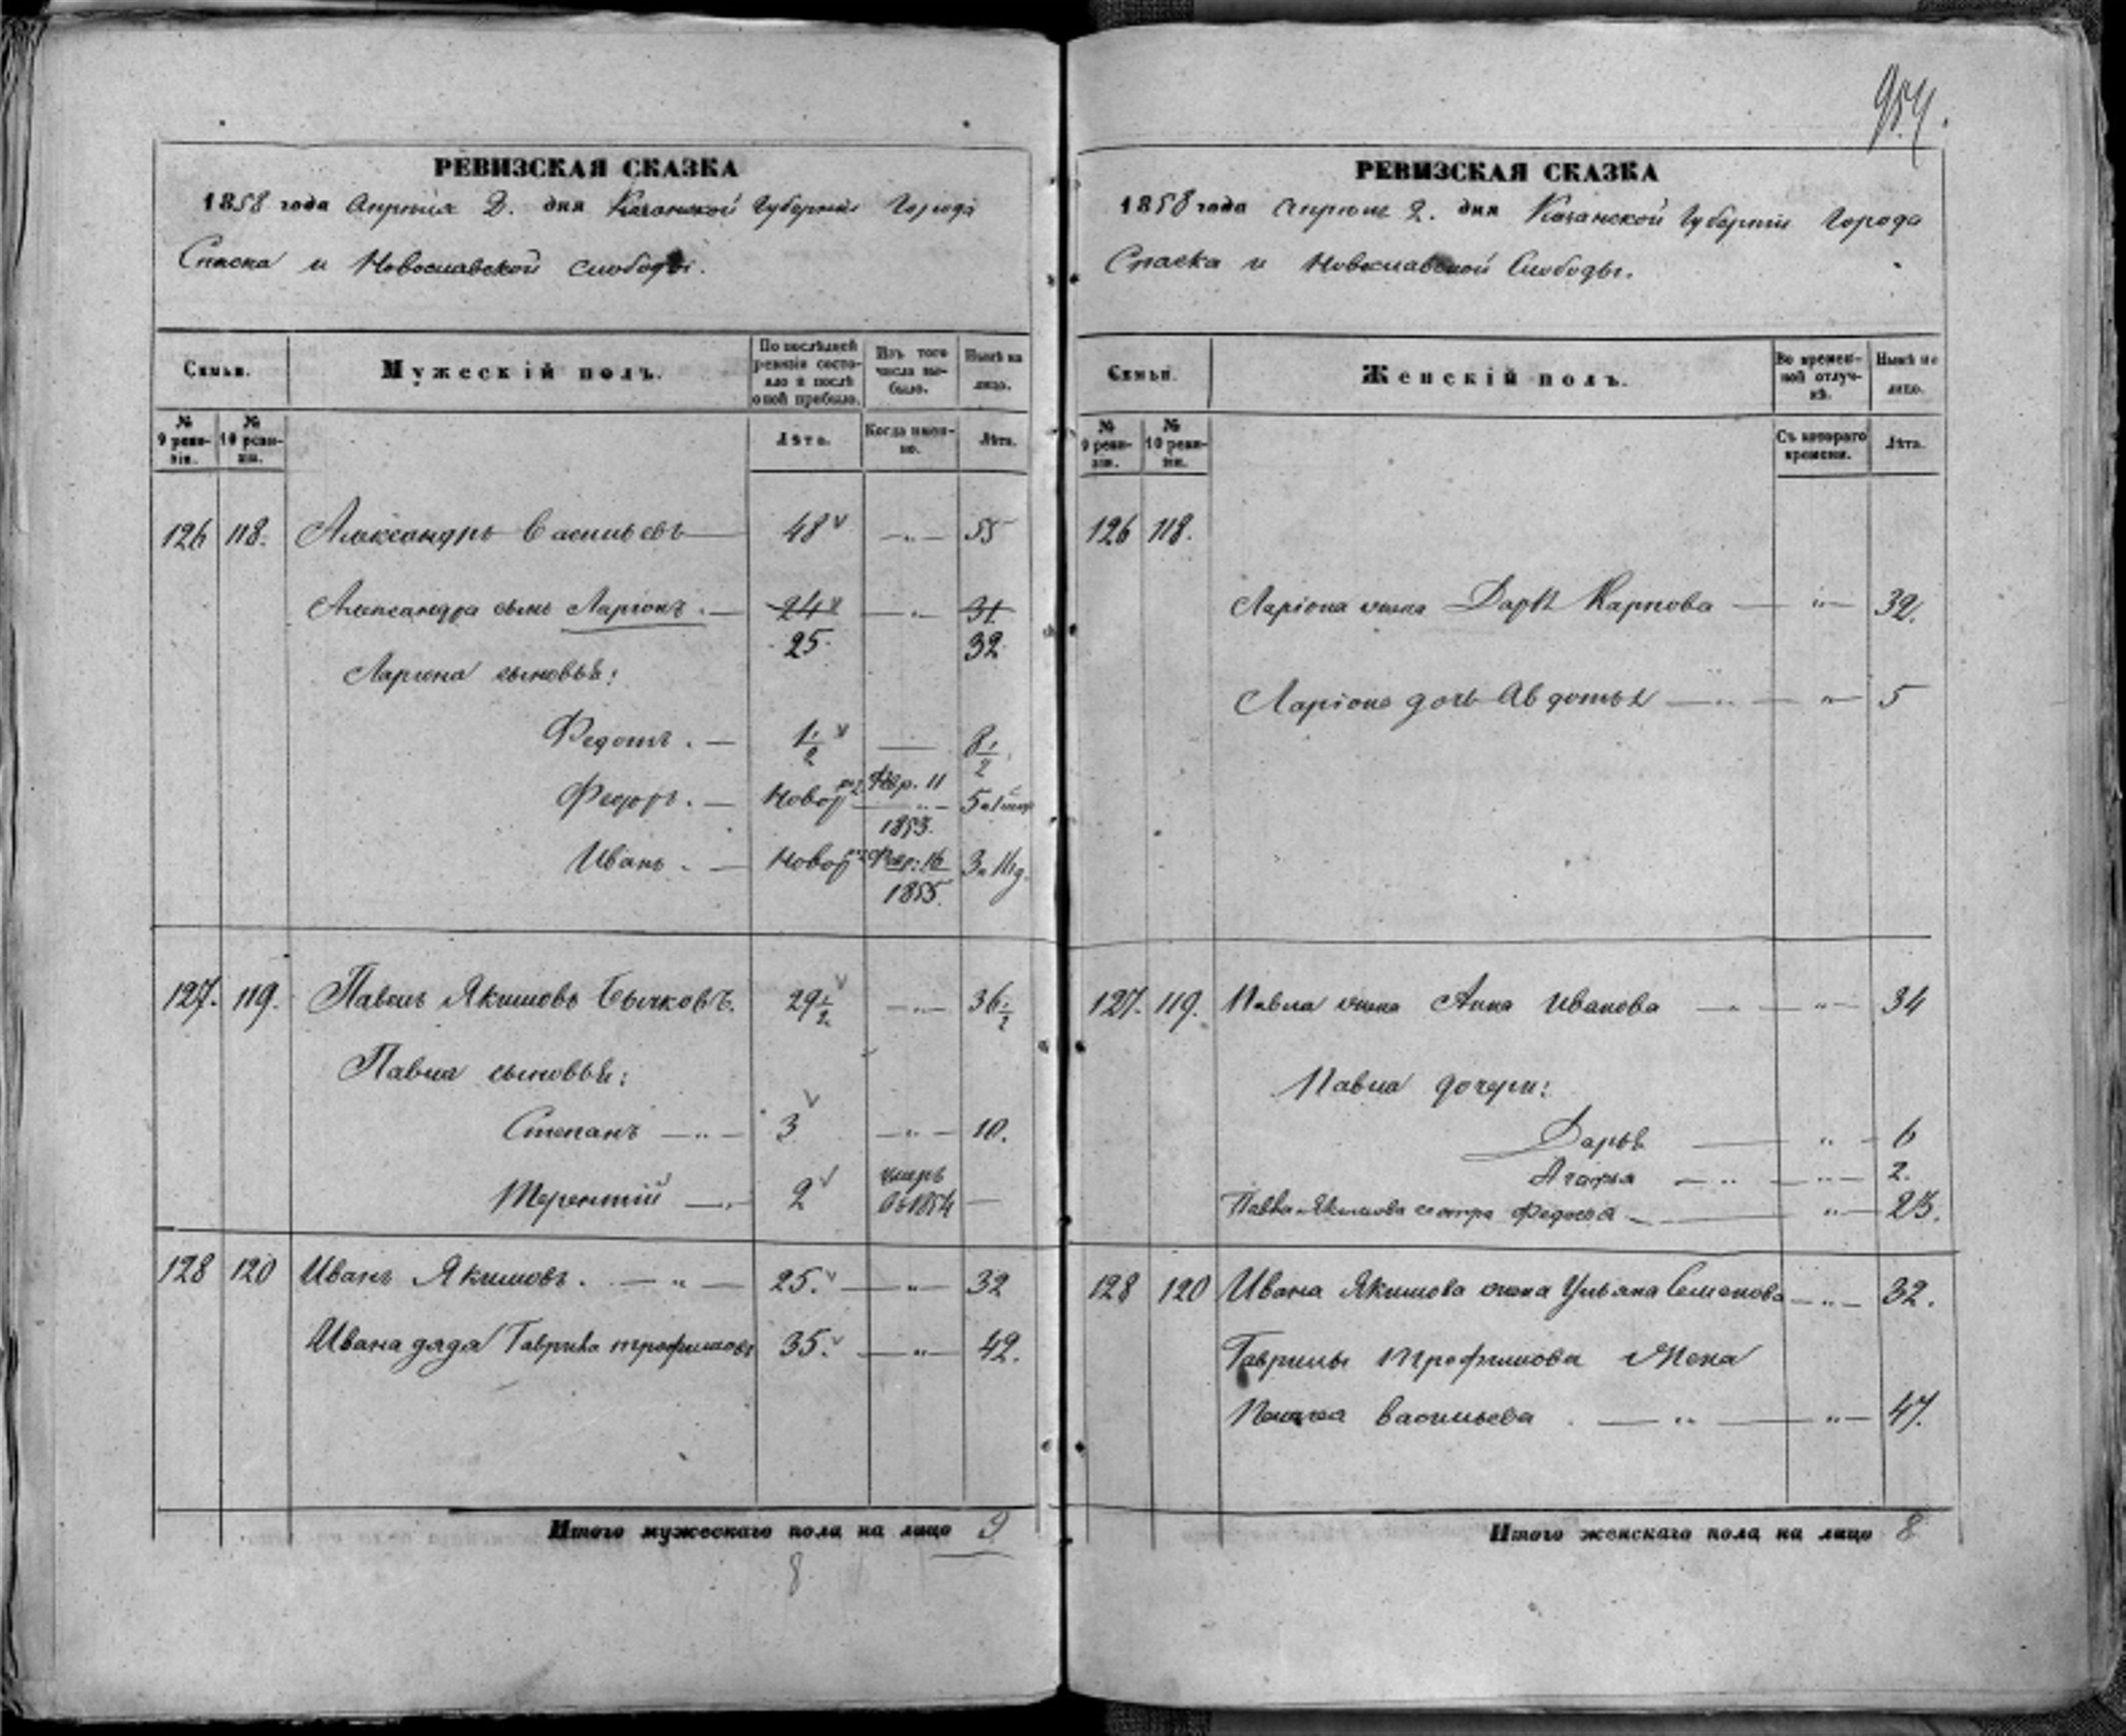 954.
РЕВИЗСКАЯ СКАЗКА
1858 года Апрѣля 2. дня Казанской Губерніи Города
Спаска и Новоспавской слободы.
Семьи.
Мужескій полъ.
По послѣдней ревизіи состояло и послѣ оной прибыло.
Изъ того числа выбыло.
Нынѣ на лицо.
№ 9 ревизіи.
№ 10 ревизіи.
Лѣта.
Когда именно.
Лѣта.
126 118. Александръ Васильевъ 48 55
Александра сынъ Ларіонъ. 24 31
25. 32
Ларіона сыновья:
Федотъ. 1 1/2 8 1/2
Феодоръ. Новор 11 5
1853.
Иванъ. Новор 16 3
1855.
127. 119. Павелъ Якимовъ Бычковъ. 29 1/2 36 1/2
Павла сыновья:
Степанъ 3 10.
Терентій 2 умеръ
въ 1854
128 120 Иванъ Якимовъ. 25. 32
Ивана дядя Гаврила Трофимовъ 35. 42.
Итого мужескаго пола на лицо 9
8
РЕВИЗСКАЯ СКАЗКА
1858 года Апрѣля 2. дня Казанской Губерніи Города
Спаска и Новоспавской Слободы.
Семьи.
Женскій полъ.
Во временной отлучкѣ.
Нынѣ на лицо.
№ 9 ревизіи.
№ 10 ревизіи.
Съ котораго времени.
Лѣта.
126 118.
Ларіона жена Дарья Карпова 32.
Ларіона дочь Авдотья 5
127. 119. Павла жена Анна Иванова 34
Павла дочери:
Дарья 6
Агафья 2.
Павла Якимова сестра Федосья
128 120 Ивана Якимова жена Ульяна Семенова 32.
Гаврилы Трофимова Жена
Васильева 47.
Итого женскаго пола на лицо 8